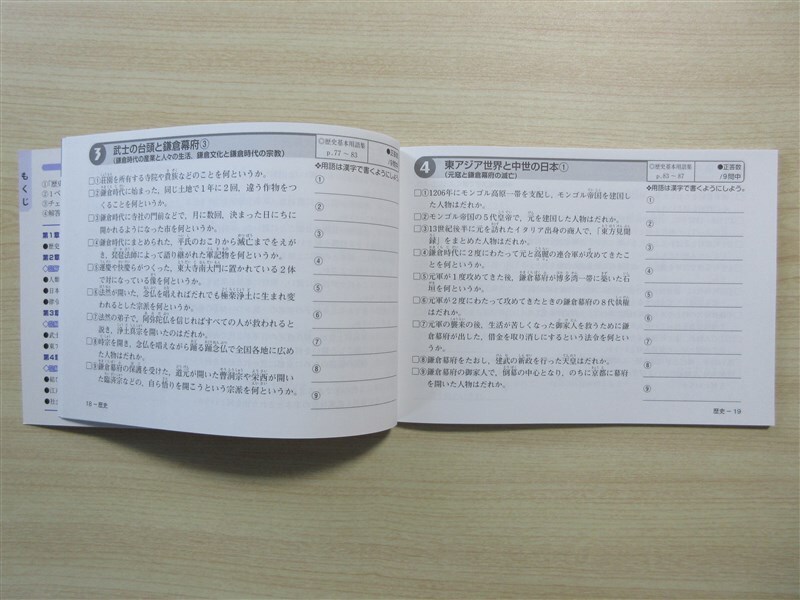 もくじ
第1章
●歴史
第2章
●人類
●日本
第3章
●武士
●東ア
第4章
3 武士の台頭と鎌倉幕府③
(鎌倉時代の産業と人々の生活，鎌倉文化と鎌倉時代の宗教)
◎歴史基本用語集
p.77～83
●正答数
/9問中
❖用語は漢字で書くようにしよう。
□①荘園を所有する寺院や貴族などのことを何というか。
□②鎌倉時代に始まった，同じ土地で1年に2回，違う作物をつ
くることを何というか。
□③鎌倉時代に寺社の門前などで，月に数回，決まった日にち
に開かれるようになった市を何というか。
□④鎌倉時代にまとめられた，平氏のおこりから滅亡までをえが
き，琵琶法師によって語り継がれた軍記物を何というか。
□⑤運慶や快慶らがつくった，東大寺南大門に置かれている2体
で対になっている像を何というか。
□⑥法然が開いた，念仏を唱えればだれでも極楽浄土に生まれ変
われるとした宗派を何というか。
□⑦法然の弟子で，阿弥陀仏を信じればすべての人が救われると
説き，浄土真宗を開いたのはだれか。
□⑧時宗を開き，念仏を唱えながら踊る踊念仏で全国各地に広め
た人物はだれか。
□⑨鎌倉幕府の保護を受けた，道元が開いた曹洞宗や栄西が開い
た臨済宗などの，自ら悟りを開こうという宗派を何というか。
①
②
③
④
⑤
⑥
⑦
⑧
⑨
18－歴史
4 東アジア世界と中世の日本①
(元寇と鎌倉幕府の滅亡)
◎歴史基本用語集
p.83～87
●正答数
/9問中
❖用語は漢字で書くようにしよう。
□①1206年にモンゴル高原一帯を支配し，モンゴル帝国を建国し
た人物はだれか。
□②モンゴル帝国の5代皇帝で，元を建国した人物はだれか。
□③13世紀後半に元を訪れたイタリア出身の商人で，「東方見聞
録」をまとめた人物はだれか。
□④鎌倉時代に2度にわたって元と高麗の連合軍が攻めてきたこ
とを何というか。
□⑤元軍が1度攻めてきた後，鎌倉幕府が博多湾一帯に築いた石
垣を何というか。
□⑥元軍が2度にわたって攻めてきたときの鎌倉幕府の8代執権
はだれか。
□⑦元軍の襲来の後，生活が苦しくなった御家人を救うために鎌
倉幕府が出した，借金を取り消しにするという法令を何とい
うか。
□⑧鎌倉幕府をたおし，建武の新政を行った天皇はだれか。
□⑨鎌倉幕府の御家人で，倒幕の中心となり，のちに京都に幕府
を開いた人物はだれか。
①
②
③
④
⑤
⑥
⑦
⑧
⑨
歴史－19